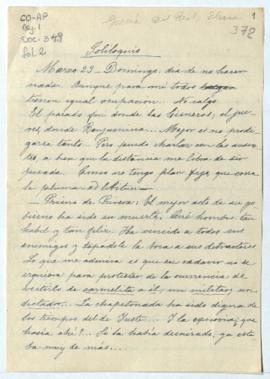 CO-AP
Leg. 1
Doc. 349
fol. 2
García del Real, Elena
1
372
Soliloquio
Marzo 23 - Domingo, día de no hacer
nada. Aunque para mí todos
tienen igual ocupación. No salgo.
El pasado fui donde las Gisneros; el jue-
ves, donde Benjamina... Mejor es no prodi-
garse tanto. Pero puedo charlar con las ausen-
tes, a bien que la distancia me libra de ser
pesada. Como no tengo plan fijo que corra
la pluma ad libitum.
Primo de Rivera: El mejor acto de su go-
bierno ha sido su muerte. ¡Qué hombre tan
hábil y tan feliz! Ha vencido a todos sus
enemigos y tapádole la boca a sus detractores.
Lo que me admira es que su cadáver no se
irguiera para protestar de la ocurrencia de
vestirlo de carmelita a él, un militar, un
dictador... La chapetonada ha sido digna de
los tiempos del de Yuste... ¿Y la espada, que
hacía ahí?... Si la había desnudado, ya esta-
ba muy de más...